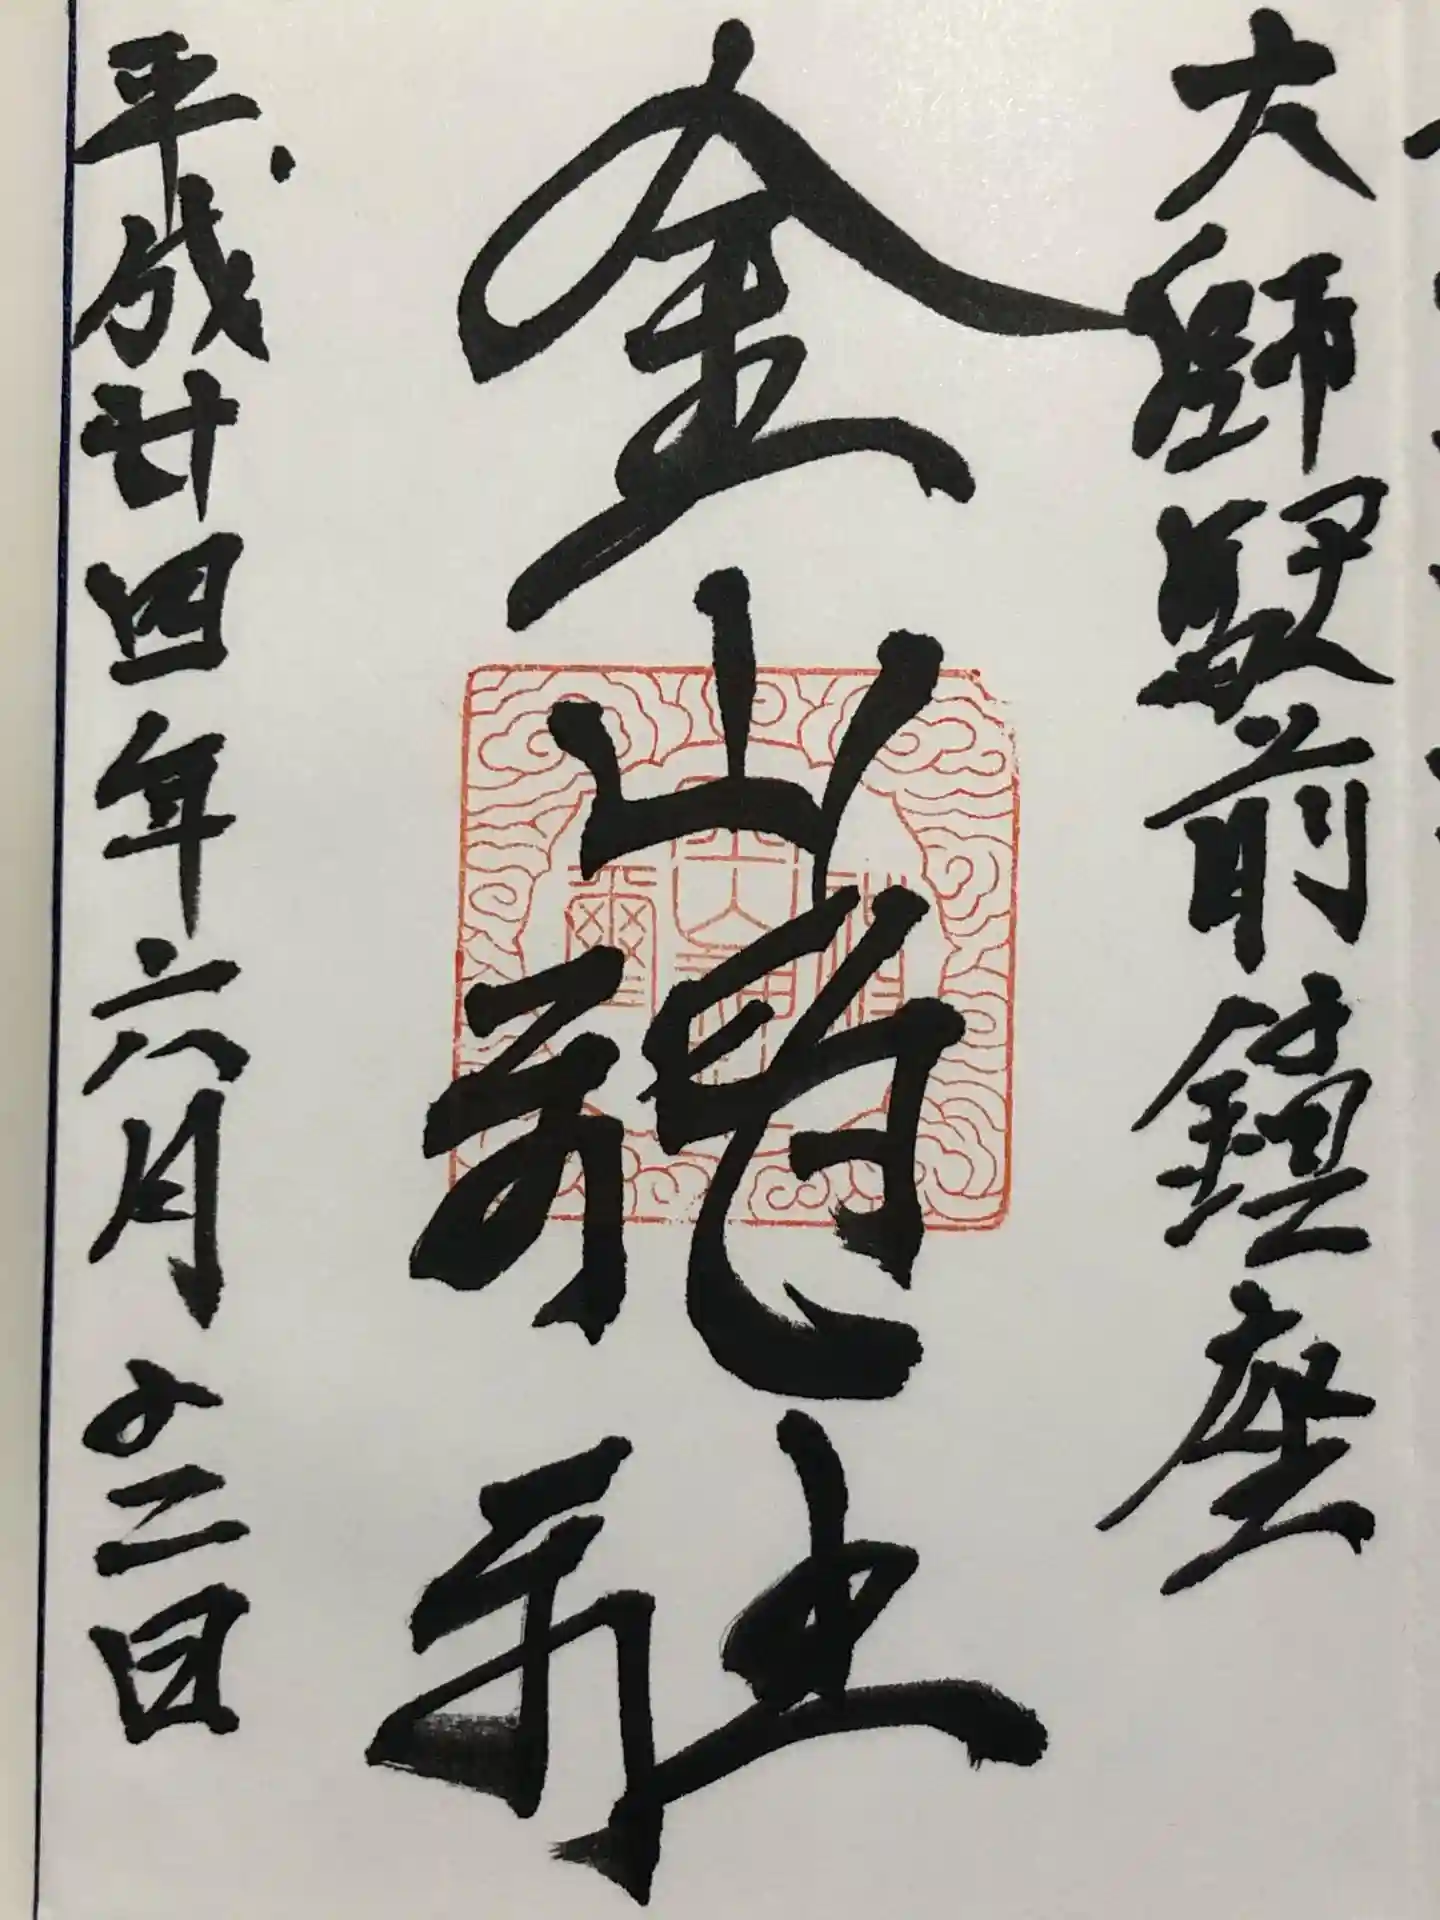 大師駅前鎮座
金山神社
平成廿四年六月 二日